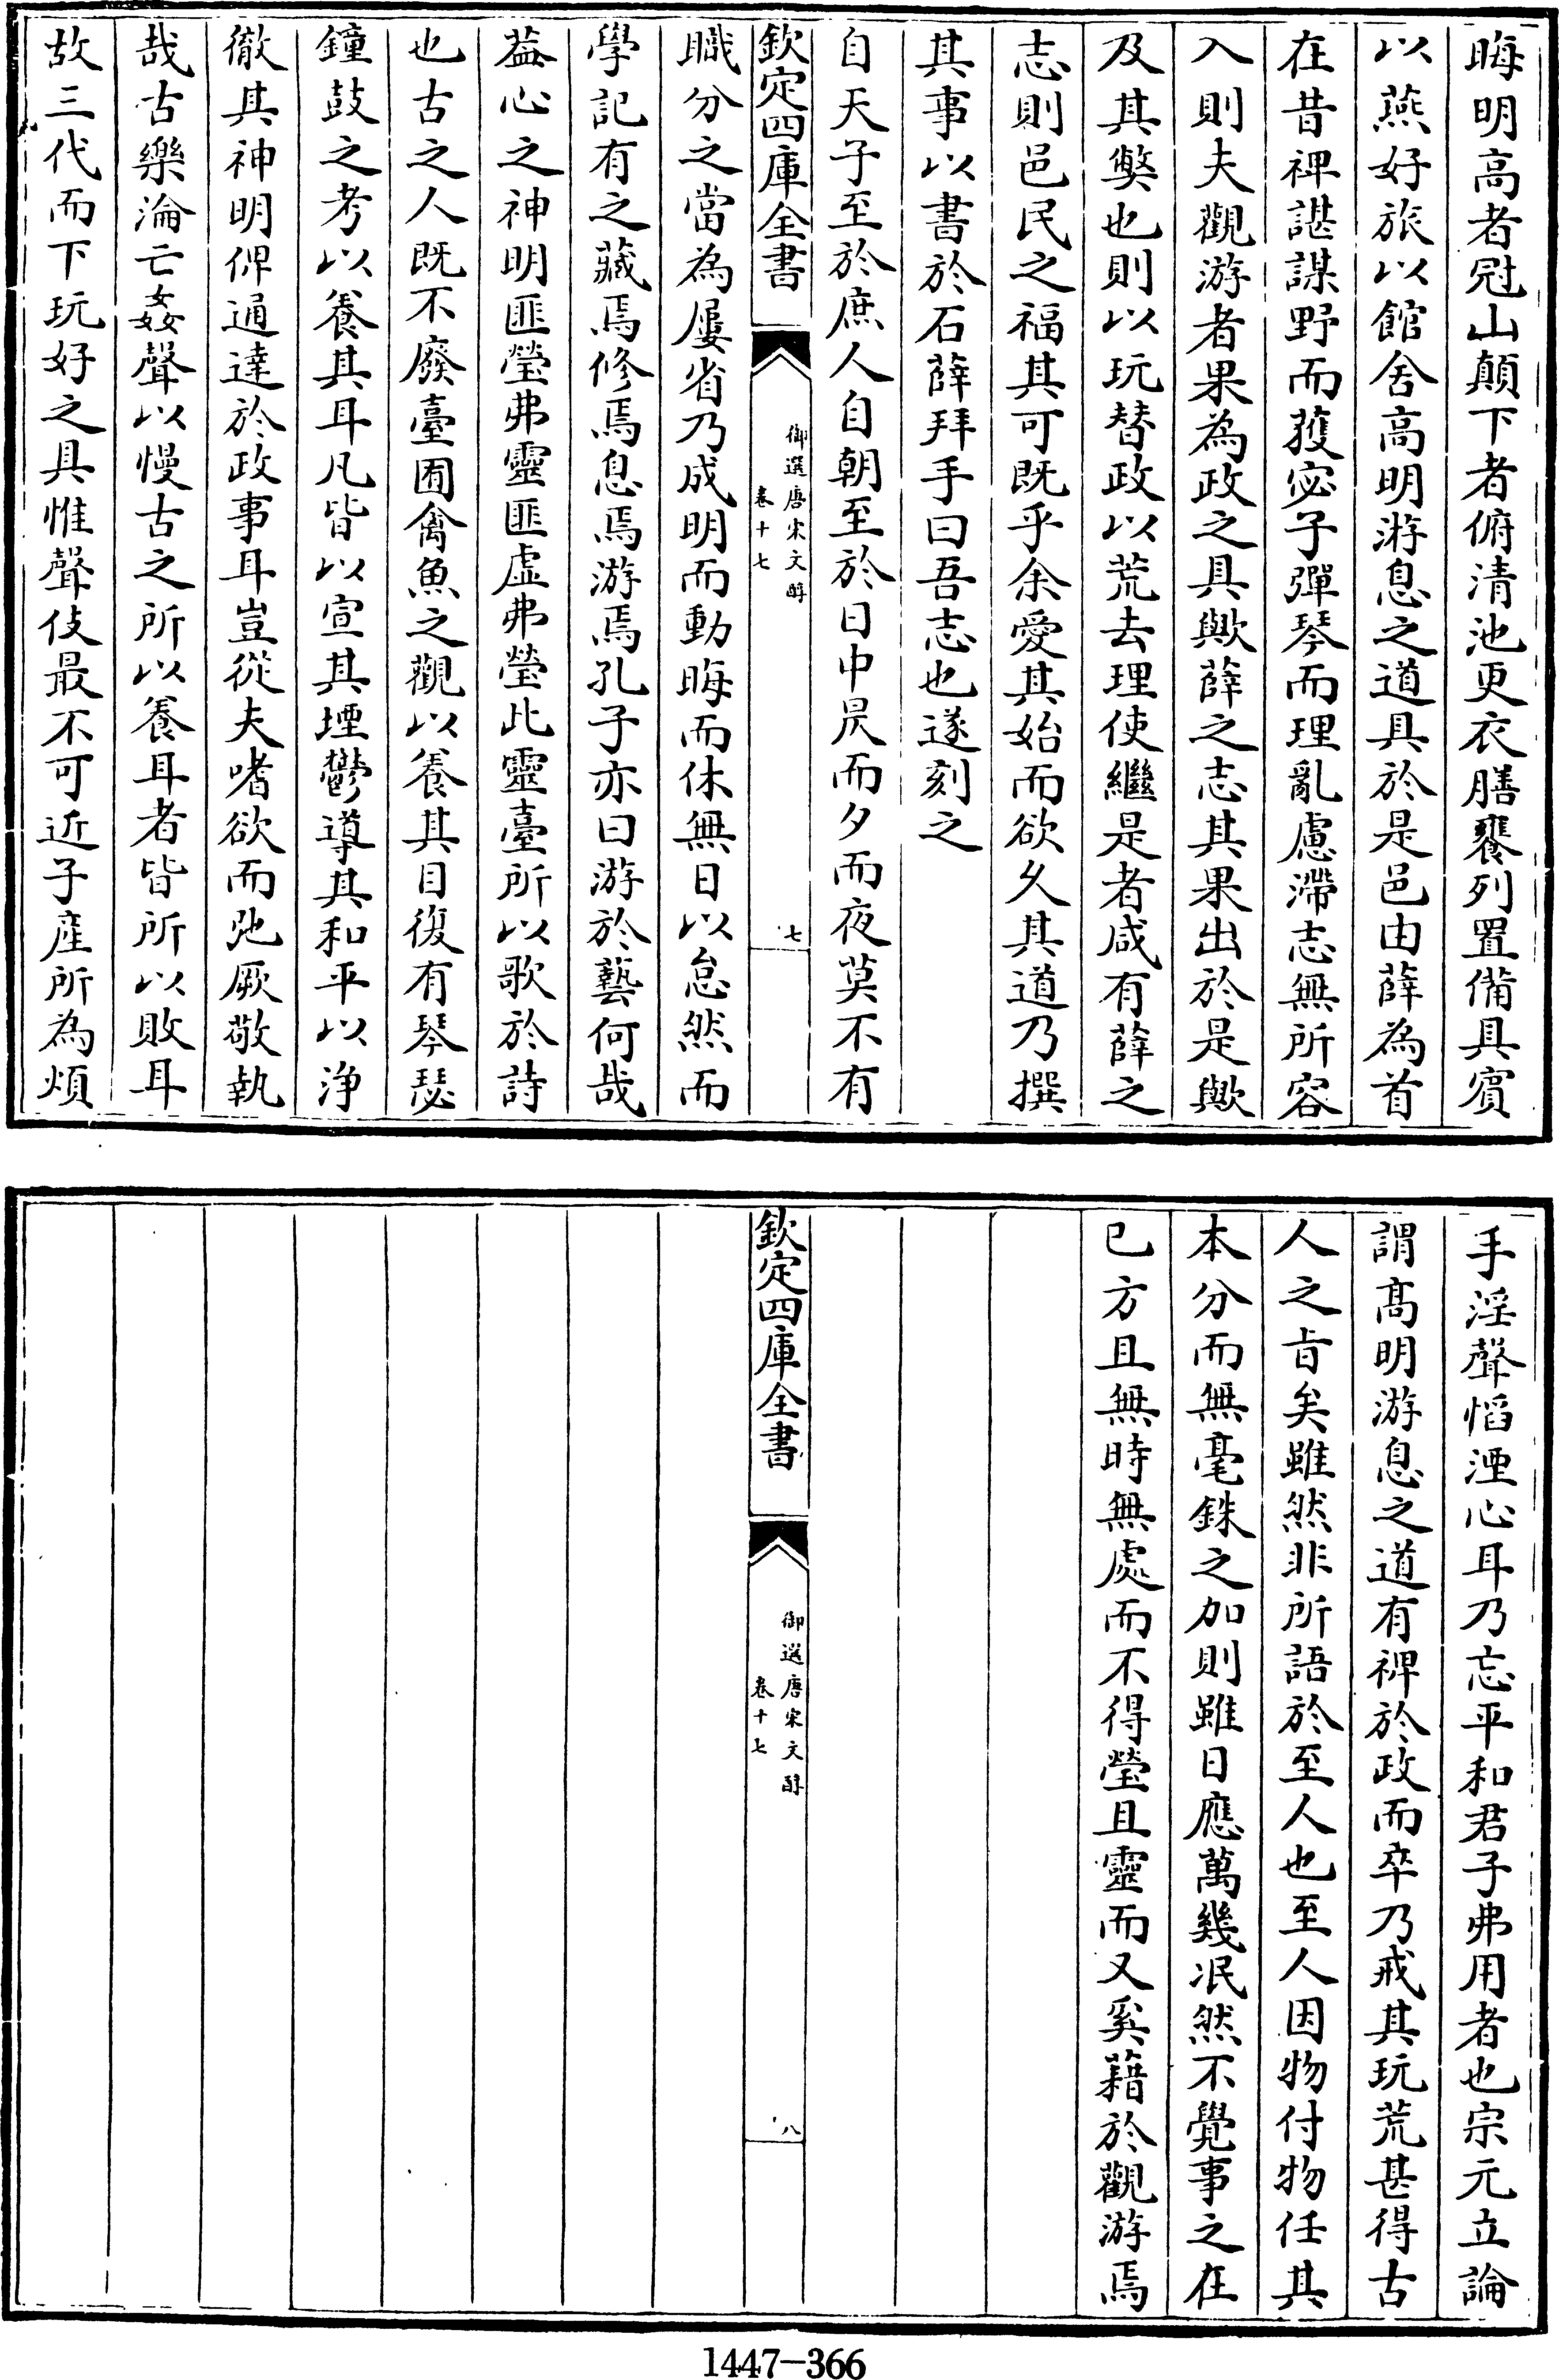 晦明高者冠山顛下者俯清池更衣膳饔列置備具賓
以燕好旅以館舍高明游息之道具於是邑由薛為首
在昔裨諶謀野而獲宓子彈琴而理亂慮滯志無所容
入則夫觀游者果為政之具歟薛之志其果出於是歟
及其弊也則以玩替政以荒去理使繼是者咸有薛之
志則邑民之福其可既乎余愛其始而欲久其道乃撰
其事以書於石薛拜手曰吾志也遂刻之
自天子至於庶人自朝至於日中昃而夕而夜莫不有
欽定四庫全書
御選唐宋文醇
卷十七
七
職分之當為屢省乃成明而動晦而休無日以怠然而
學記有之藏焉修焉息焉游焉孔子亦曰游於藝何哉
葢心之神明匪瑩弗靈匪虛弗瑩此靈臺所以歌於詩
也古之人既不廢臺囿禽魚之觀以養其目復有琴瑟
鐘鼓之考以養其耳凡皆以宣其堙鬱導其和平以淨
徹其神明俾通達於政事耳豈從夫嗜欲而弛厥敬執
哉古樂淪亡姦聲以慢古之所以養耳者皆所以敗耳
故三代而下玩好之具惟聲伎最不可近子產所為煩
手淫聲慆湮心耳乃忘平和君子弗用者也宗元立論
謂髙明游息之道有裨於政而卒乃戒其玩荒甚得古
人之㫖矣雖然非所語於至人也至人因物付物任其
本分而無毫銖之加則雖日應萬幾泯然不覺事之在
已方且無時無處而不得瑩且靈而又奚藉於觀游焉
欽定四庫全書
御選唐宋文醇
卷十七
八
1447-366